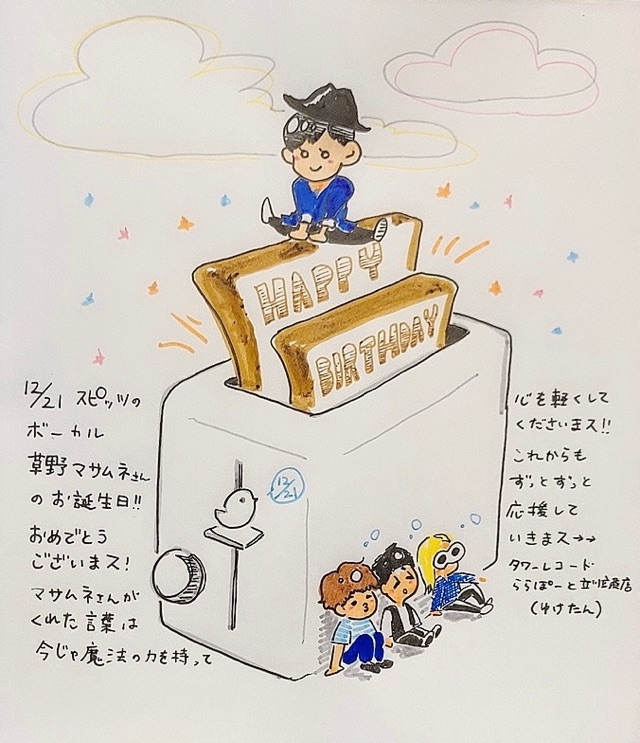 HAPPY
BIRTHDAY
12/21
12/21 スピッツの
ボーカル
草野マサムネさん
のお誕生日!!
おめでとう
ございまス!
マサムネさんが
くれた言葉は
今じゃ魔法の力を持って
心を軽くして
くださいまス!!
これからも
ずっとずっと
応援して
いきまス→→
タワーレコード
ららぽーと立川立飛店
(ゆけたん)